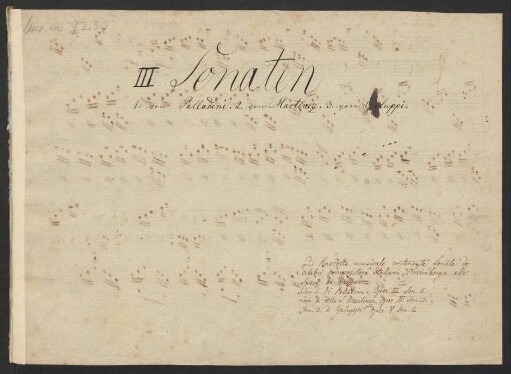 Mus. ms. 2232
III Sonaten
1. von Palladini. 2. von Martinez. 3. von Galuppi.
Raccolta musicale contenente Sonate di
celebri compositori Italiani, Norimbergo alle
Spese di
Son. di Palladini Oper III Son.
Son. di Martinez Oper III Son. 3.
Son. 3. di Galuppi Oper V Son. 2.